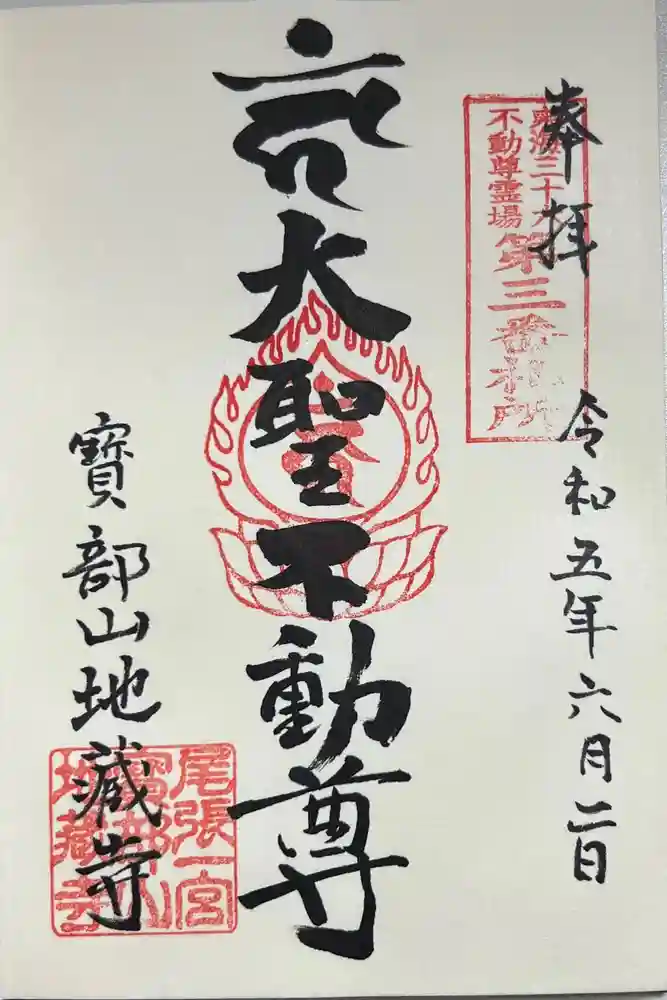 奉拝
東海三十六
不動尊霊場
第三番札所
令和五年六月二日
大聖不動尊
寶部山地蔵寺
尾張一宮
寶部山
地蔵寺